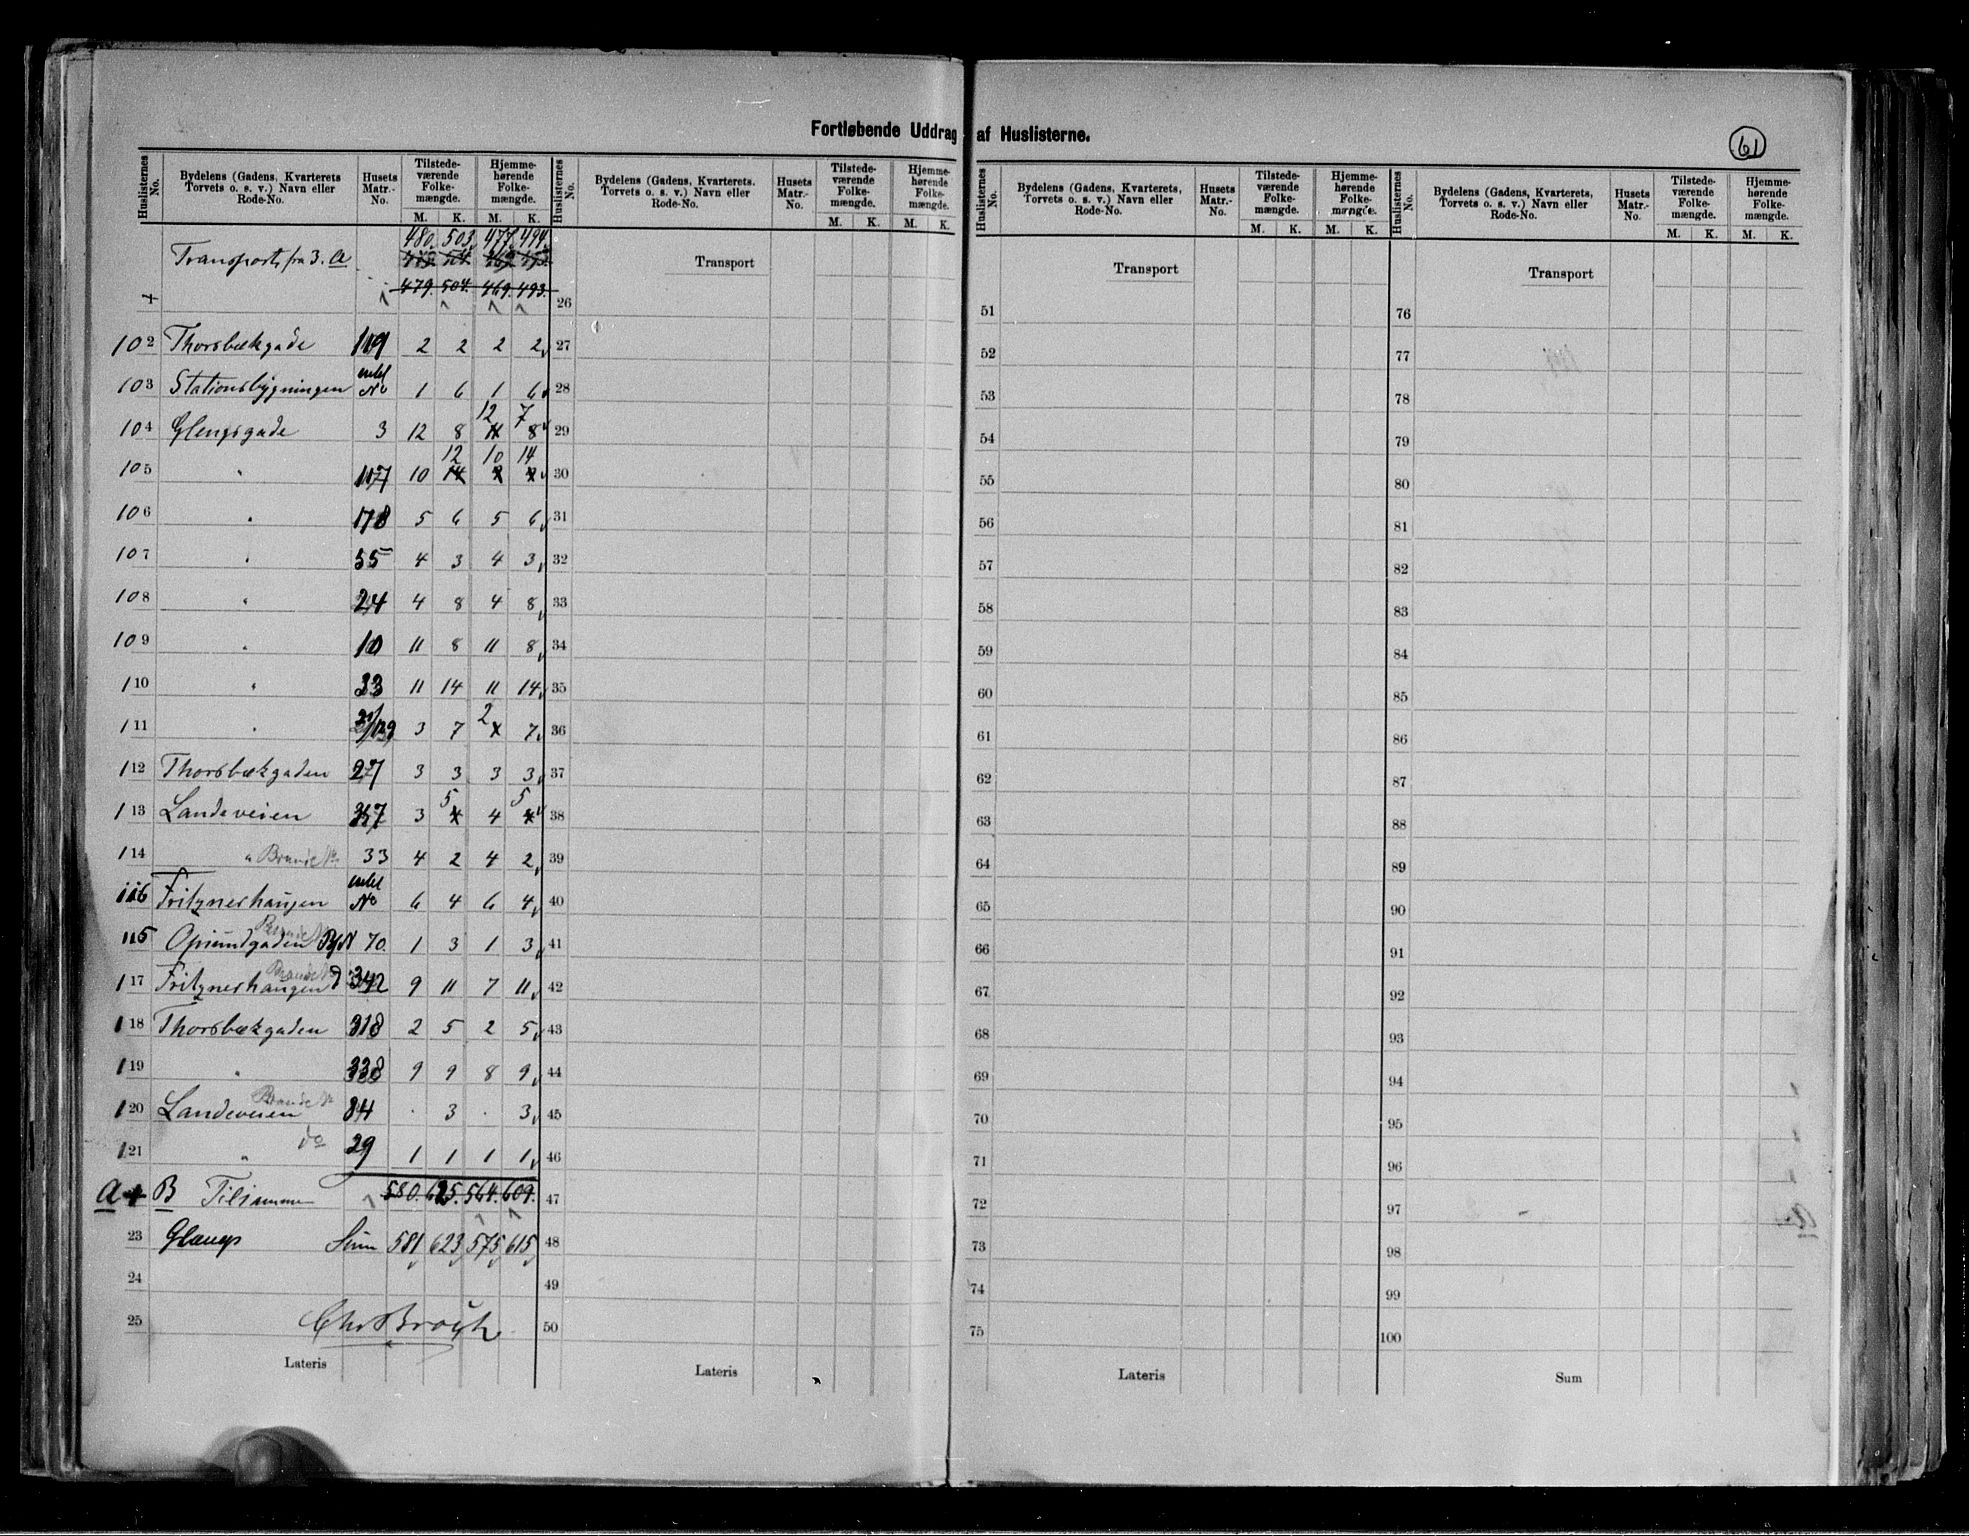 Fortløbende Uddrag af Huslisterne.
61
Huslisternes No. Bydelens (Gadens, Kvarterets Torvets o. s. v.) Navn eller Rode-No. Husets Matr.-No. Tilstedeværende Folkemængde. M. K. Hjemmehørende Folkemængde. M. K.
480. 503. 477. 494.
Transport fra 3. A
479. 504. 469. 493.
102 Thorsbækgade 119 2 2 2 2
103 Stationsbygningen No 1 6 1 6
12 7
104 Glengsgade 3 12 8 11 8
12 10 14
105 " 117 10 14
106 " 178 5 6 5 6
107 " 55 4 3 4 3
108 " 24 4 8 4 8
109 " 10 11 8 11 8
110 " 33 11 14 11 14
2
111 " 3 7 7
112 Thorsbækgaden 27 3 3 3 3
5 5
113 Landeveien 357 3 4 4 4
114 " Brande No 33 4 2 4 2
116 Fritznerhaugen No 6 4 6 4
115 Opsundgaden 70. 1 3 1 3
117 Fritznerhaugen Brande No 342 9 11 7 11
118 Thorsbækgaden 318 2 5 2 5
119 " 338 9 9 8 9
120 Landeveien Brande No 84 . 3 . 3
121 " do 29 1 1 1 1
A + B Tilsammen 580. 625. 564. 609.
23 Glengs Sum 581 623 575 615
24
25 Chr Broch
Lateris
Huslisternes No. Bydelens (Gadens, Kvarterets. Torvets o. s. v.) Navn eller Rode-No. Husets Matr.-No. Tilstedeværende Folkemængde. M. K. Hjemmehørende Folkemængde. M. K.
Transport
26
27
28
29
30
31
32
33
34
35
36
37
38
39
40
41
42
43
44
45
46
47
48
49
50
Lateris
Huslisternes No. Bydelens (Gadens, Kvarterets, Torvets o. s. v.) Navn eller Rode-No. Husets Matr.-No. Tilstedeværende Folkemængde. M. K. Hjemmehørende Folkemængde. M. K.
Transport
51
52
53
54
55
56
57
58
59
60
61
62
63
64
65
66
67
68
69
70
71
72
73
74
75
Lateris
Huslisternes No. Bydelens (Gadens, Kvarterets, Torvets o. s. v.) Navn eller Rode-No. Husets Matr.-No. Tilstedeværende Folkemængde. M. K. Hjemmehørende Folkemængde. M. K.
Transport
76
77
78
79
80
81
82
83
84
85
86
87
88
89
90
91
92
93
94
95
96
97
98
99
100
Sum